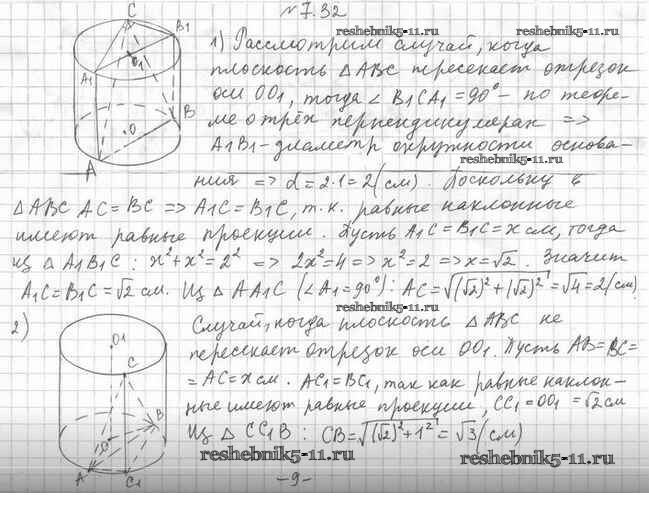 №7.32
reshebnik5-11.ru
1) Рассмотрим случай, когда
плоскость △ABC пересекает отрезок
оси OO₁, тогда ∠B₁CA₁=90° – по теоре-
ме о трёх перпендикулярах =>
A₁B₁-диаметр окружности основа-
reshebnik5-11.ru
ния => d=2·1=2(см). Поскольку в
△ABC AC=BC => A₁C=B₁C, т.к. равные наклонные
имеют равные проекции. Пусть A₁C=B₁C=x см, тогда
из △A₁B₁C: x²+x²=2² => 2x²=4 => x²=2 => x=√2. Значит
A₁C=B₁C=√2 см. Из △AA₁C (∠A₁=90°): AC=√((√2)²+(√2)²)=√4=2(см)
reshebnik5-11.ru
2) Случай, когда плоскость △ABC не
пересекает отрезок оси OO₁. Пусть AB=BC=
=AC=x см. AC₁=BC₁, так как равные наклон-
ные имеют равные проекции, CC₁=OO₁=√2 см
Из △CC₁B: CB=√((√2)²+1²)=√3(см)
reshebnik5-11.ru
reshebnik5-11.ru
-9-
C
B₁
O₁
A₁
B
O
A
O₁
C
B
O
A
C₁